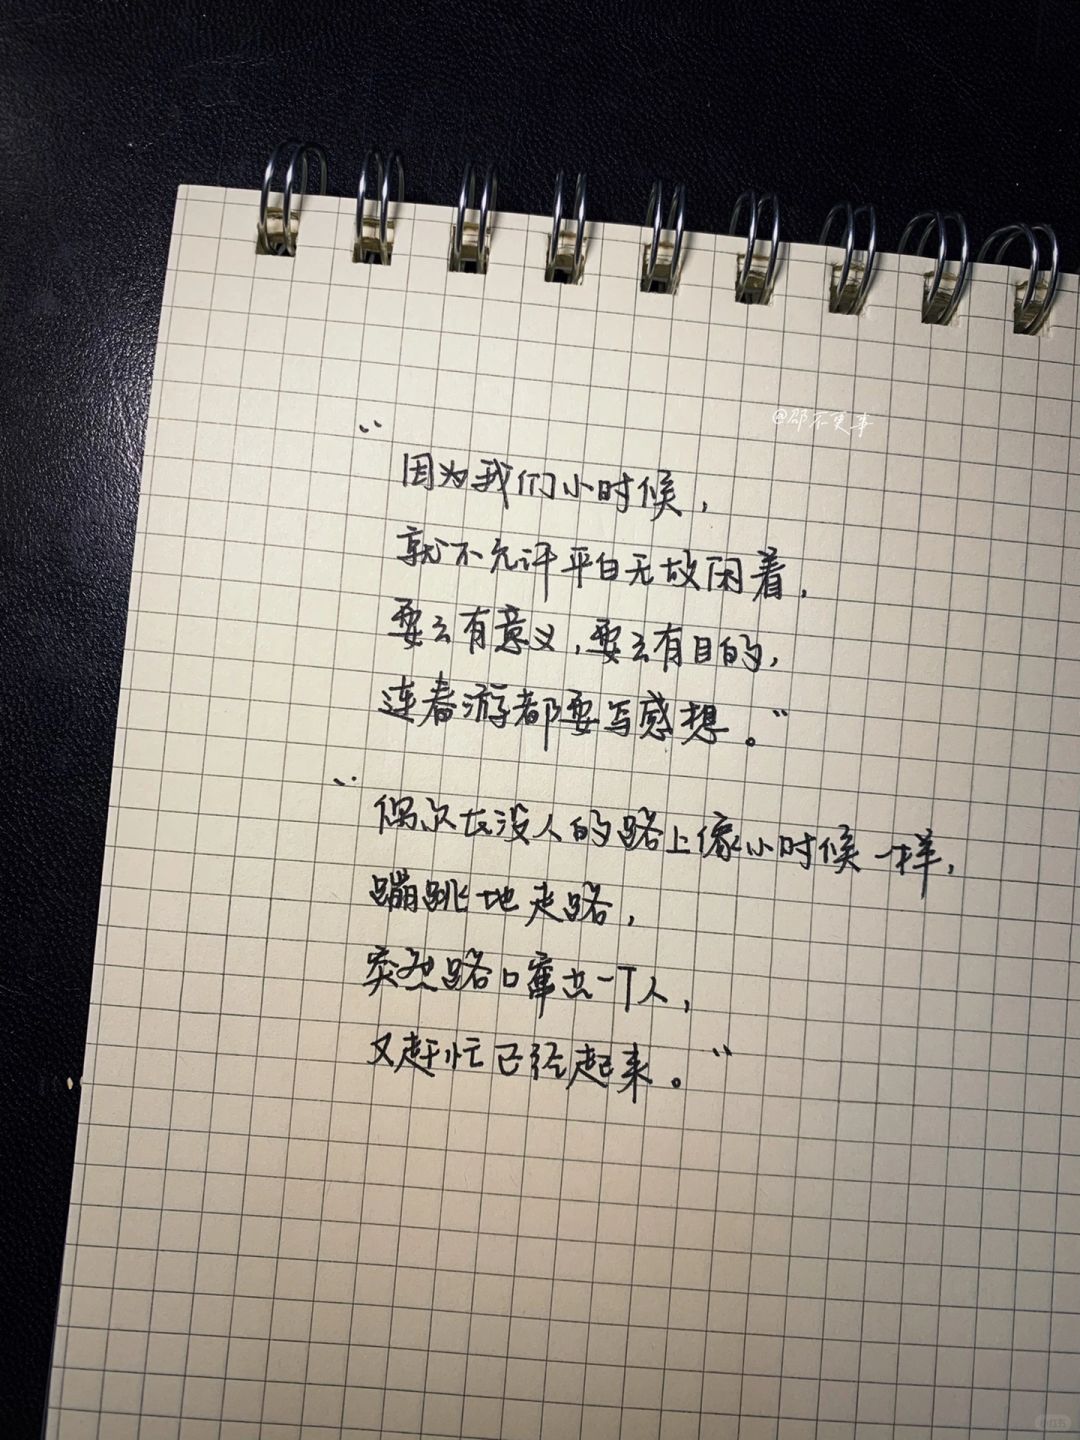 @邵不更事
“
因为我们小时候，
就不允许平白无故闲着，
要么有意义，要么有目的，
连春游都要写感想。”
“
偶尔在没人的路上像小时候一样，
蹦跳地走路，
突然路口窜出一个人，
又赶忙正经起来。”